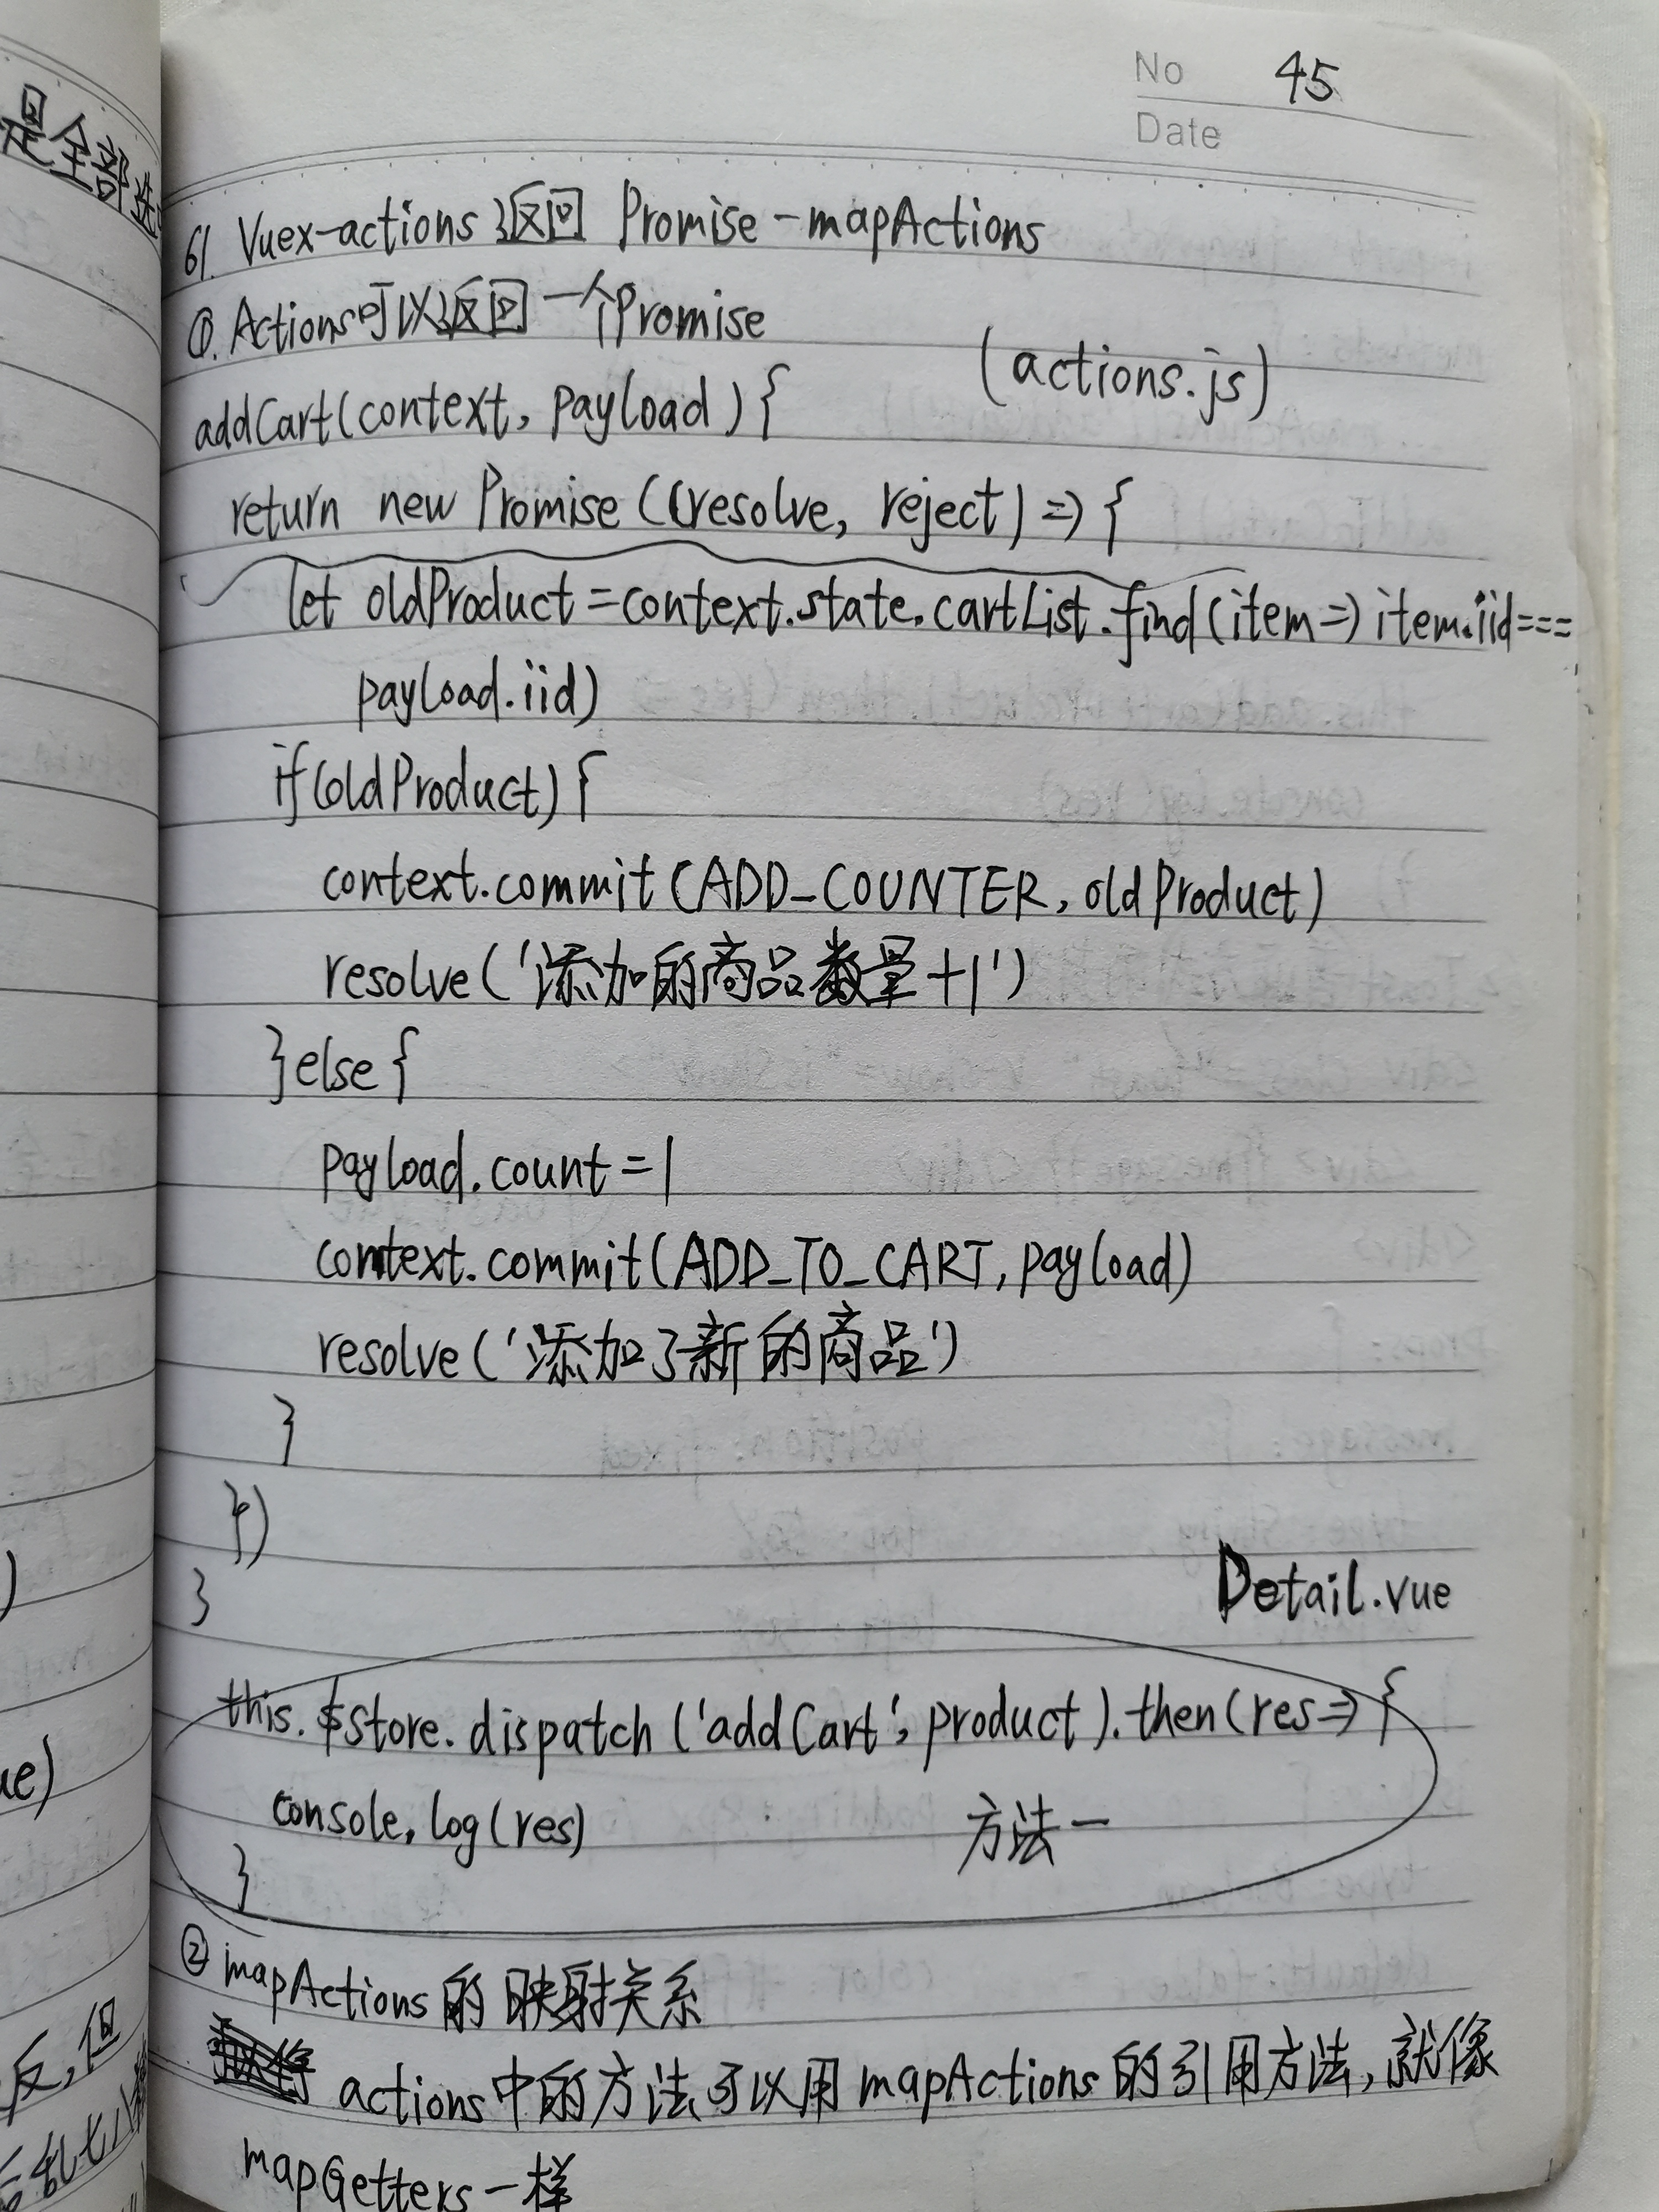 No 45
Date
是全部选
61. Vuex-actions 返回 Promise-mapActions
①. Actions可以返回一个Promise
(actions.js)
addCart(context, payload){
return new Promise((resolve, reject) => {
let oldProduct=context.state.cartList.find(item=> item.iid===
payload.iid)
if(oldProduct){
context.commit(ADD_COUNTER, oldProduct)
resolve('添加的商品数量+1')
}else{
payload.count=1
context.commit(ADD_TO_CART, payload)
resolve('添加了新的商品')
}
})
}
Detail.vue
this.$store.dispatch('addCart', product).then(res=>{
console.log(res)
方法一
}
② mapActions的映射关系
actions中的方法可以用mapActions的引用方法,就像
mapGetters一样
)
ue)
反,但